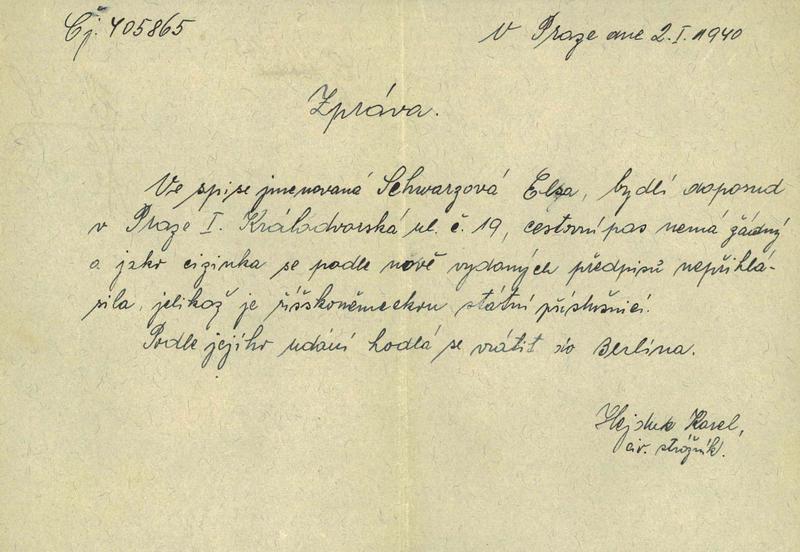 Čj. 405865
V Praze dne 2.I.1940
Zpráva.
Ve spise jmenovaná Schwarzová Elsa, bydlí doposud
v Praze I. Královdvorská ul. č. 19, cestovní pas nemá žádný
a jako cizinka se podle nově vydaných předpisů nepřihlá-
sila, jelikož je říšskoněmeckou státní příslušnicí.
Podle jejího udání hodlá se vrátit do Berlína.
Hejduk Karel,
civ. strážník.